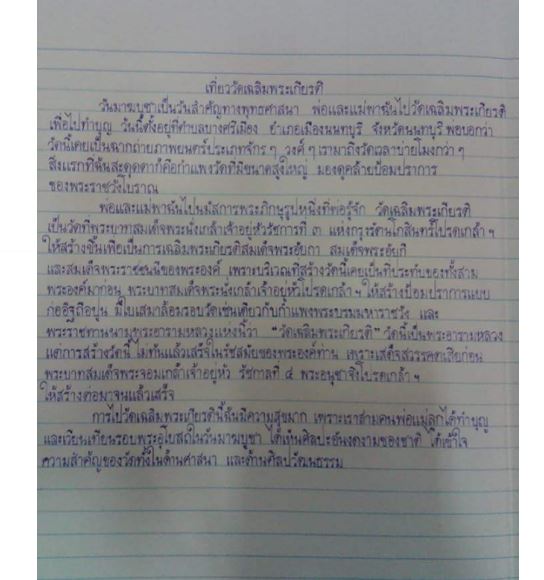 เที่ยววัดเฉลิมพระเกียรติ
วันมาฆบูชาเป็นวันสำคัญทางพุทธศาสนา พ่อและแม่พาฉันไปวัดเฉลิมพระเกียรติ
เพื่อไปทำบุญ วันนี้ตั้งอยู่ที่ตำบลบางศรีเมือง อำเภอเมืองนนทบุรี จังหวัดนนทบุรี พ่อบอกว่า
วัดนี้เคยเป็นฉากถ่ายภาพยนตร์ประเภทจักร ๆ วงศ์ ๆ เรามาถึงวัดเวลาบ่ายโมงกว่า ๆ
สิ่งแรกที่ฉันสะดุดตาก็คือกำแพงวัดที่มีขนาดสูงใหญ่ มองดูคล้ายป้อมปราการ
ของพระราชวังโบราณ
พ่อและแม่พาฉันไปนมัสการพระภิกษุรูปหนึ่งที่พ่อรู้จัก วัดเฉลิมพระเกียรติ
เป็นวัดที่พระบาทสมเด็จพระนั่งเกล้าเจ้าอยู่หัวรัชการที่ ๓ แห่งกรุงรัตนโกสินทร์โปรดเกล้า ฯ
ให้สร้างขึ้นเพื่อเป็นการเฉลิมพระเกียรติสมเด็จพระอัยกา สมเด็จพระอัยกี
และสมเด็จพระราชชนนีของพระองค์ เพราะบริเวณที่สร้างวัดนี้เคยเป็นที่ประทับของทั้งสาม
พระองค์มาก่อน พระบาทสมเด็จพระนั่งเกล้าเจ้าอยู่หัวโปรดเกล้า ฯ ให้สร้างป้อมปราการแบบ
ก่ออิฐถือปูน มีใบเสมาล้อมรอบวัดเช่นเดียวกับกำแพงพระบรมมหาราชวัง และ
พระราชทานนามพระอารามหลวงแห่งนี้ว่า “วัดเฉลิมพระเกียรติ” วัดนี้เป็นพระอารามหลวง
แต่การสร้างวัดนี้ ไม่ทันแล้วเสร็จในรัชสมัยของพระองค์ท่าน เพราะเสด็จสวรรคตเสียก่อน
พระบาทสมเด็จพระจอมเกล้าเจ้าอยู่หัว รัชกาลที่ ๔ พระอนุชาจึงโปรดเกล้า ฯ
ให้สร้างต่อมาจนแล้วเสร็จ
การไปวัดเฉลิมพระเกียรตินี้ฉันมีความสุขมาก เพราะเราสามคนพ่อแม่ลูกได้ทำบุญ
และเวียนเทียนรอบพระอุโบสถในวันมาฆบูชา ได้เห็นศิลปะอันงดงามของชาติ ได้เข้าใจ
ความสำคัญของวัดทั้งในด้านศาสนา และด้านศิลปวัฒนธรรม